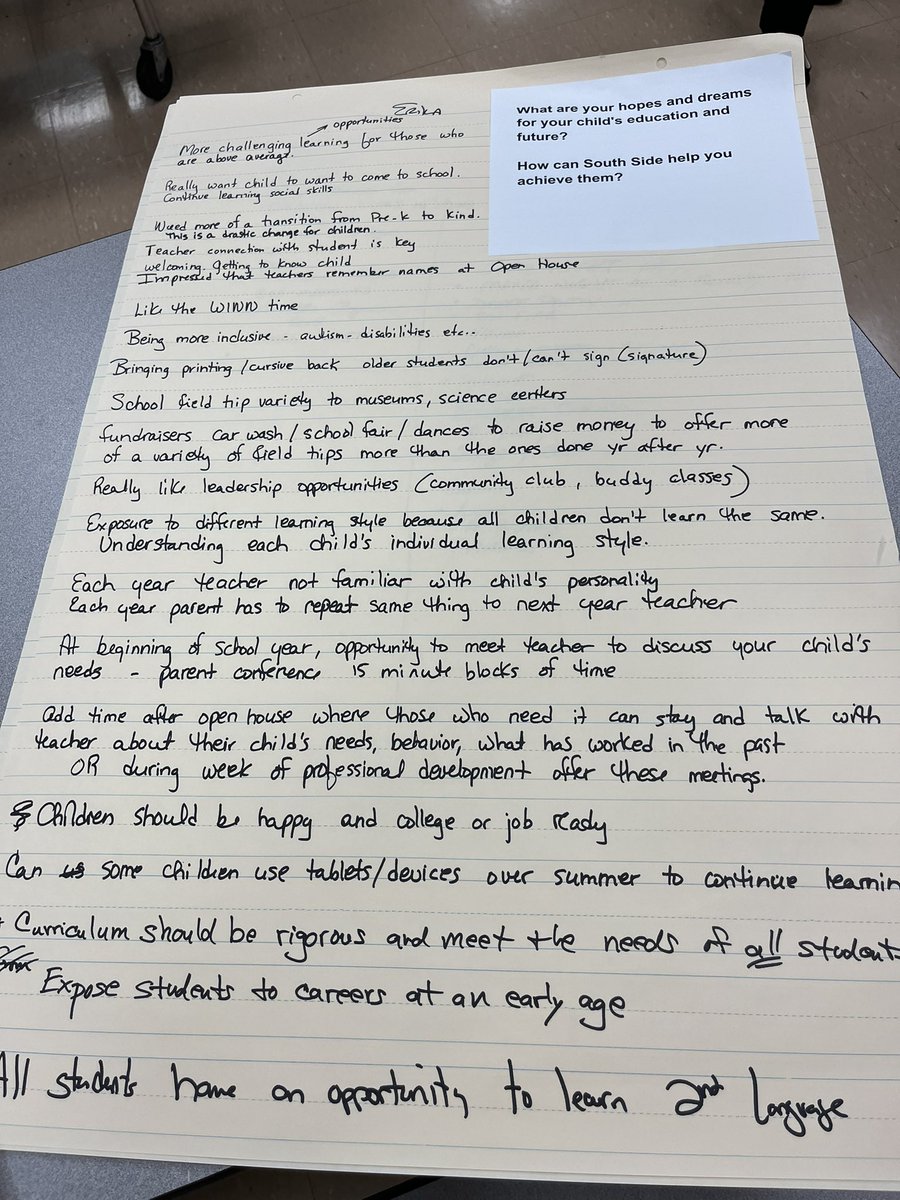 What are your hopes and dreams
for your child's education and
future?
How can South Side help you
achieve them?
ErikA
opportunities
More challenging learning for those who
are above average.
Really want child to want to come to school.
Continue learning social skills
more of a transition from Pre-k to Kind.
This is a drastic change for children.
Teacher connection with student is key
welcoming. getting to know child
Impressed that teachers remember names at Open House
Like the WINN time
Being more inclusive - autism - disabilities etc..
Bringing printing/cursive back older students don't/can't sign (signature)
School field tip variety to museums, science
fundraisers car wash/school fair/dances to raise money to offer more
of a variety of field tips more than the ones done yr after yr.
Really like leadership opportunities (community club, buddy classes)
Exposure to different learning style because all children don't learn the same.
Understanding each child's individual learning style.
Each year teacher not familiar with child's personality
Each year parent has to repeat same thing to next year teacher
At beginning of school year, opportunity to meet teacher to discuss your child's
needs - parent conference 15 minute blocks of time
add time after open house where those who need it can stay and talk with
teacher about their child's needs, behavior, what has worked in the past
OR during week of professional development offer these meetings.
Children should be happy and college or job ready
Can some children use tablets/devices over summer to continue learnin
Curriculum should be rigorous and meet the needs of all student
Expose students to careers at an early age
All students have an opportunity to learn 2nd language